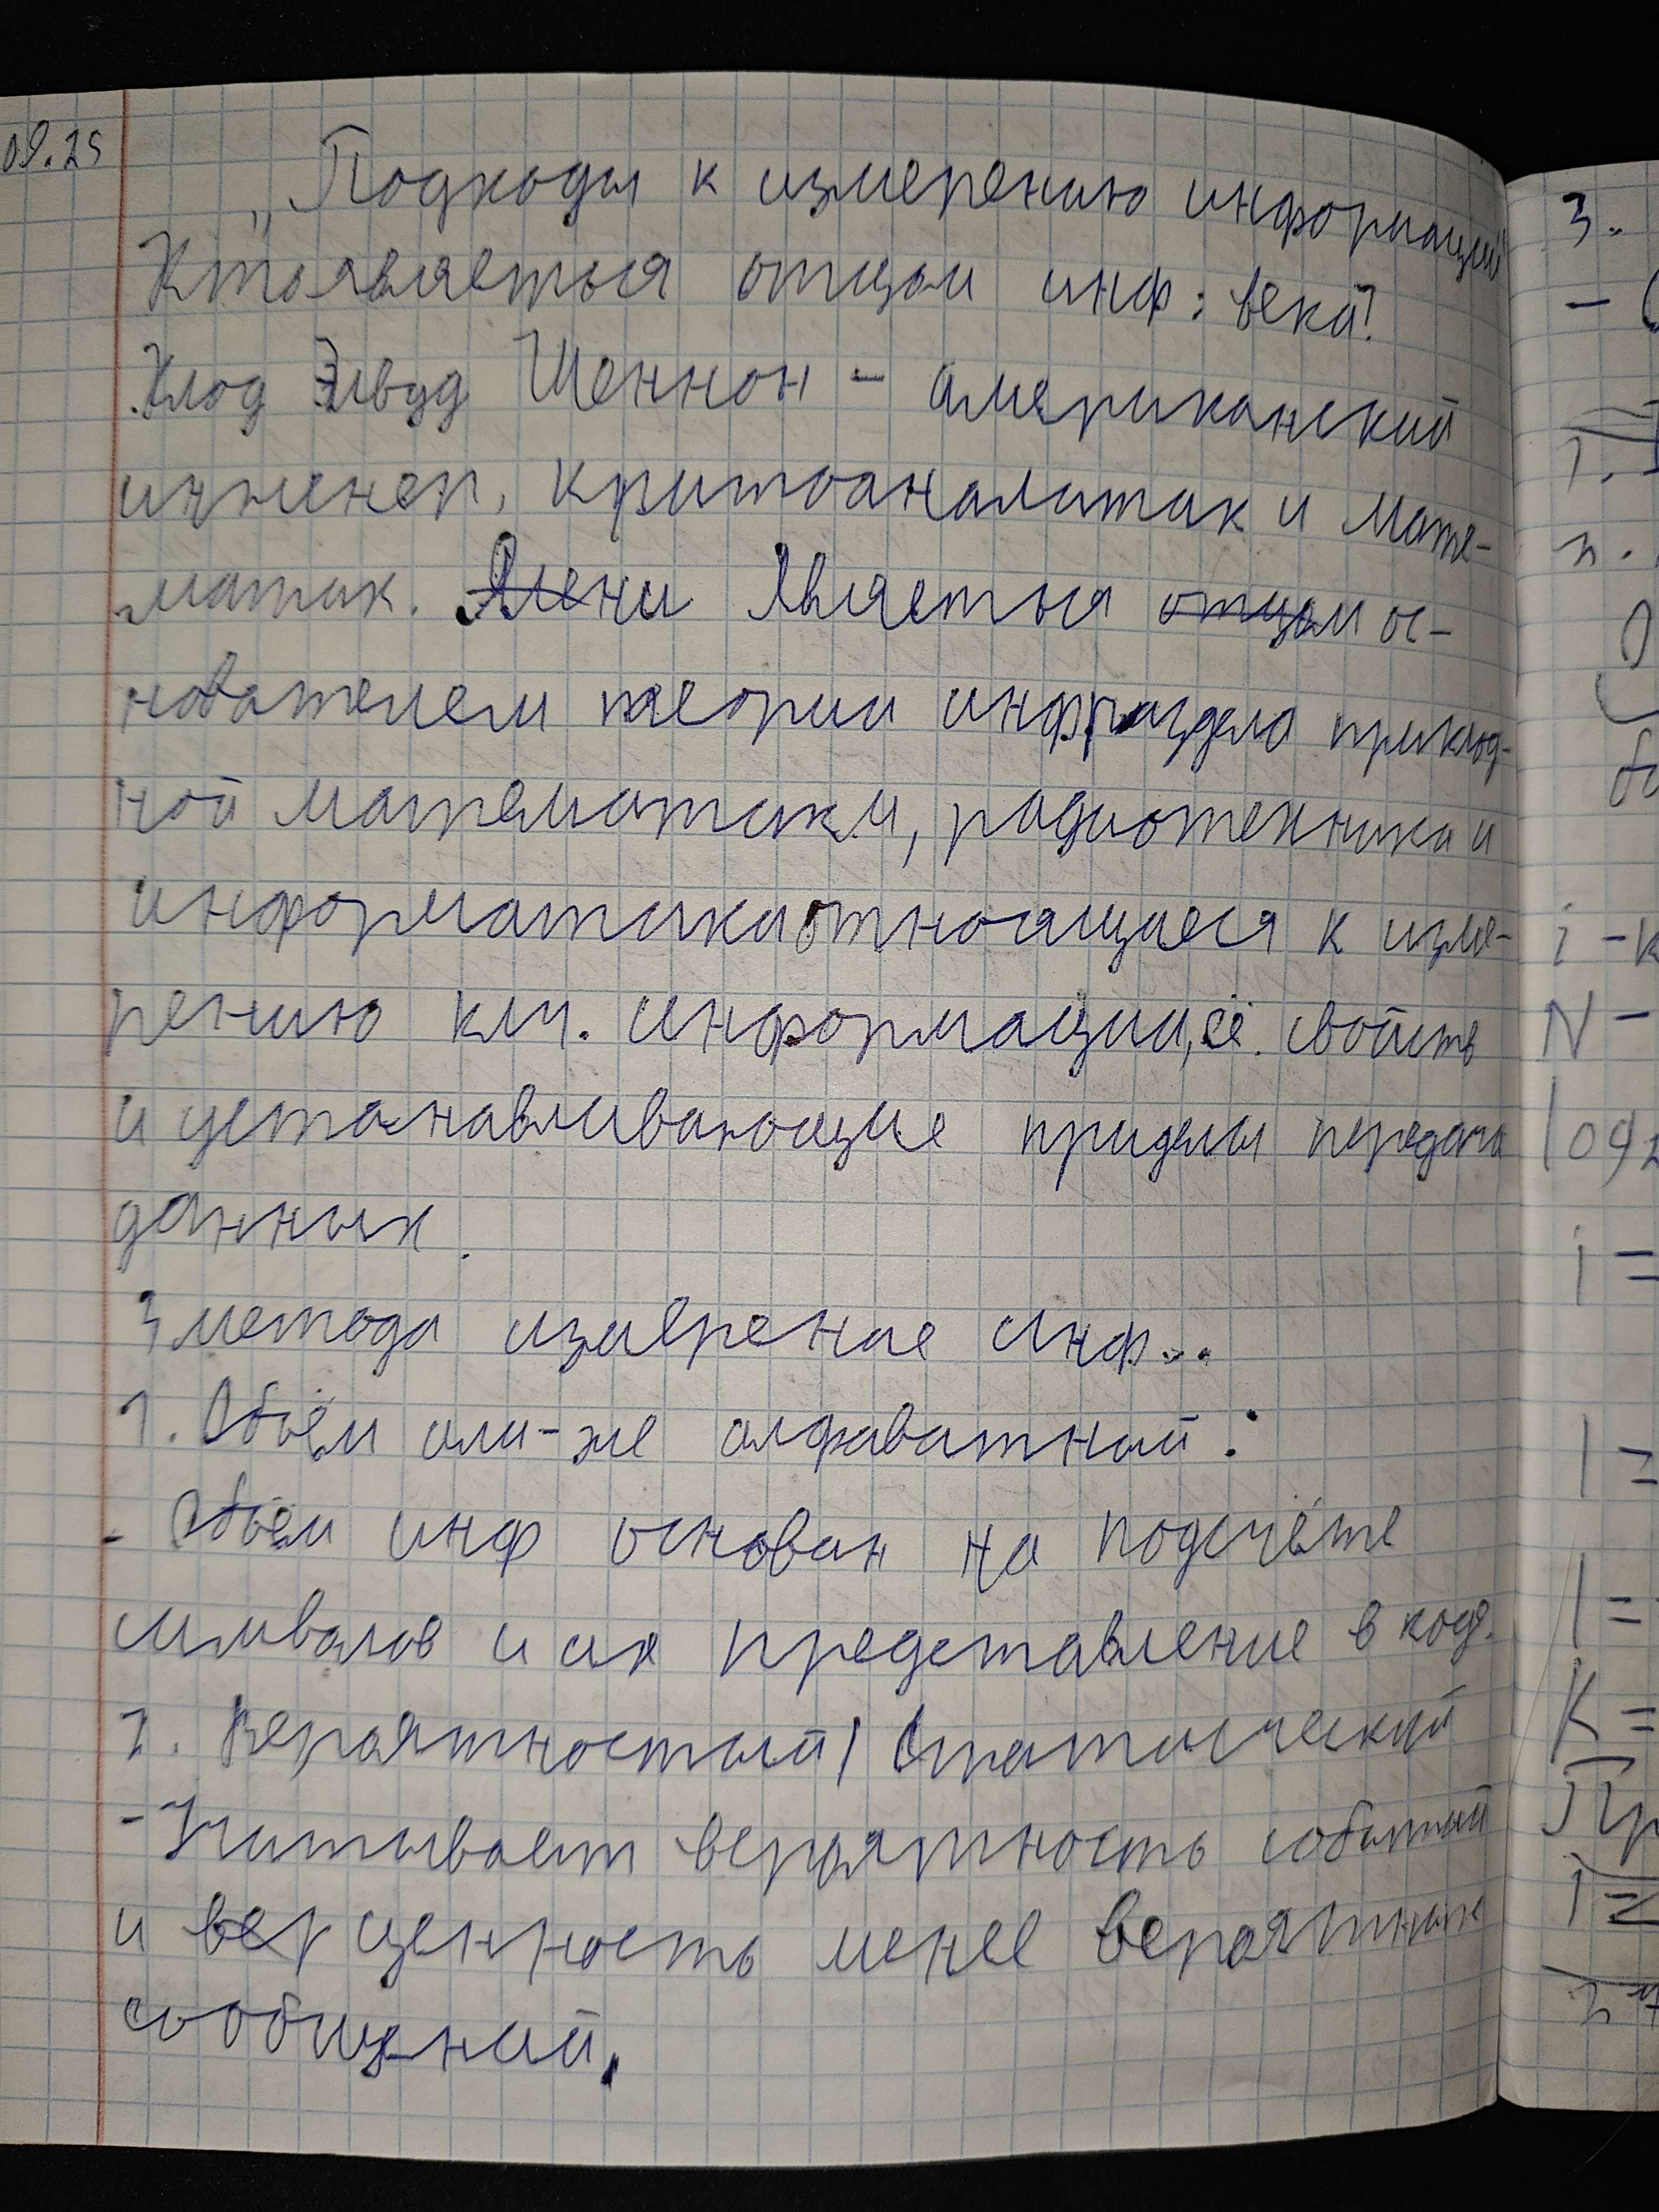 09.25
„Подходы к измерению информации"
Кто является отцом инф. века?
Клод Элвуд Шеннон – американский
инженер, критоаналитик и мате-
матик. Является отцом ос-
нователем теории инф раздела приклад-
ной математики, радиотехника и
информатики относящиеся к изме-
рению кол. информации, её свойств
и устанавливающие приделы передачи
данных.
3 метода измерение инф...
1. Объём или-же алфаватный:
- Объём инф основан на подсчёте
символов и их представление в код.
2. Вероятностный/Статический
- Учитывает вероятность событий
и ценность менее вероятных
сообщений.
3.
i - к
N -
log2
i =
I =
I =
K =
Пр